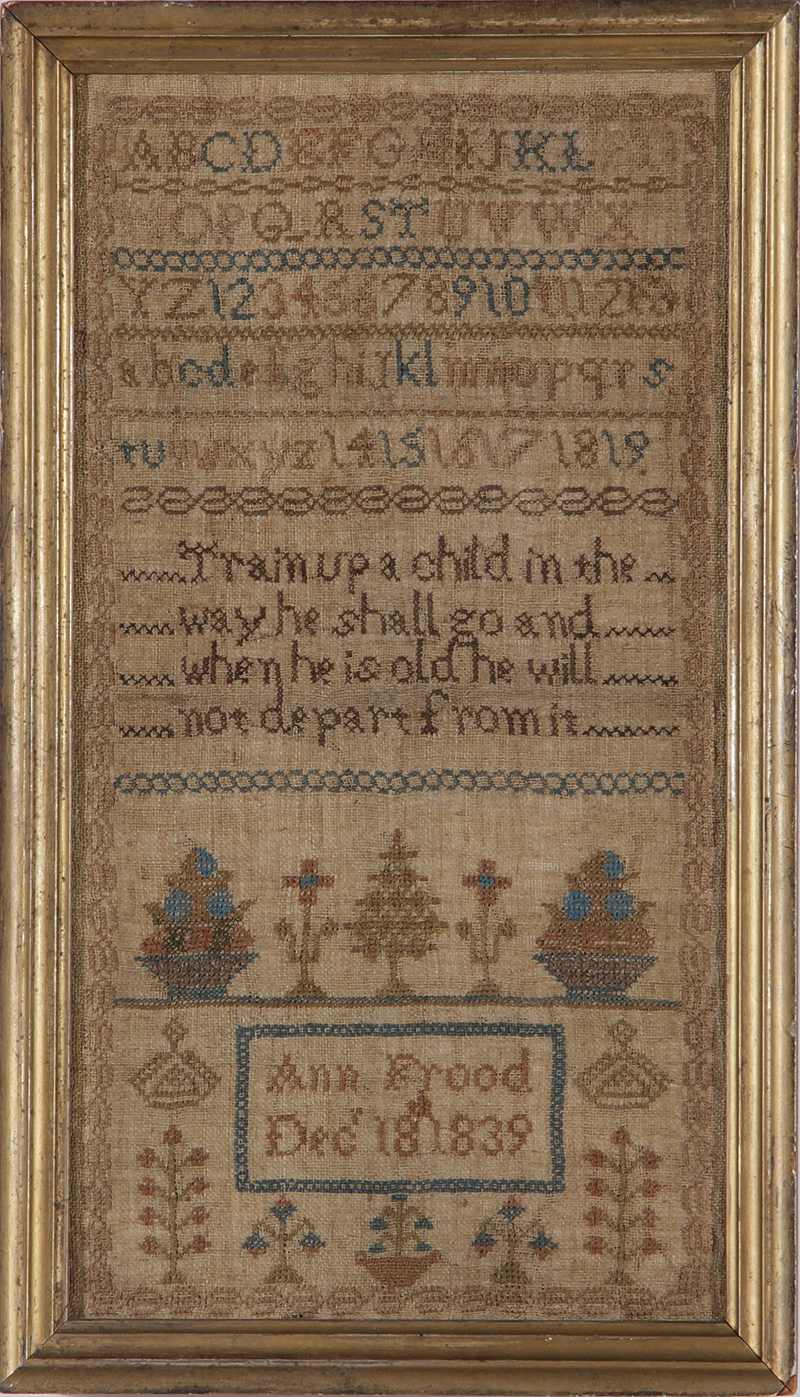 ABCDEFGHIJKLMN
OPQRSTUVWX
YZ12345678910111213
abcdefghijklmnopqrs
tuvwxyz141516171819
Train up a child in the
way he shall go and
when he is old he will
not depart from it
Ann Frood
Decr 18th 1839